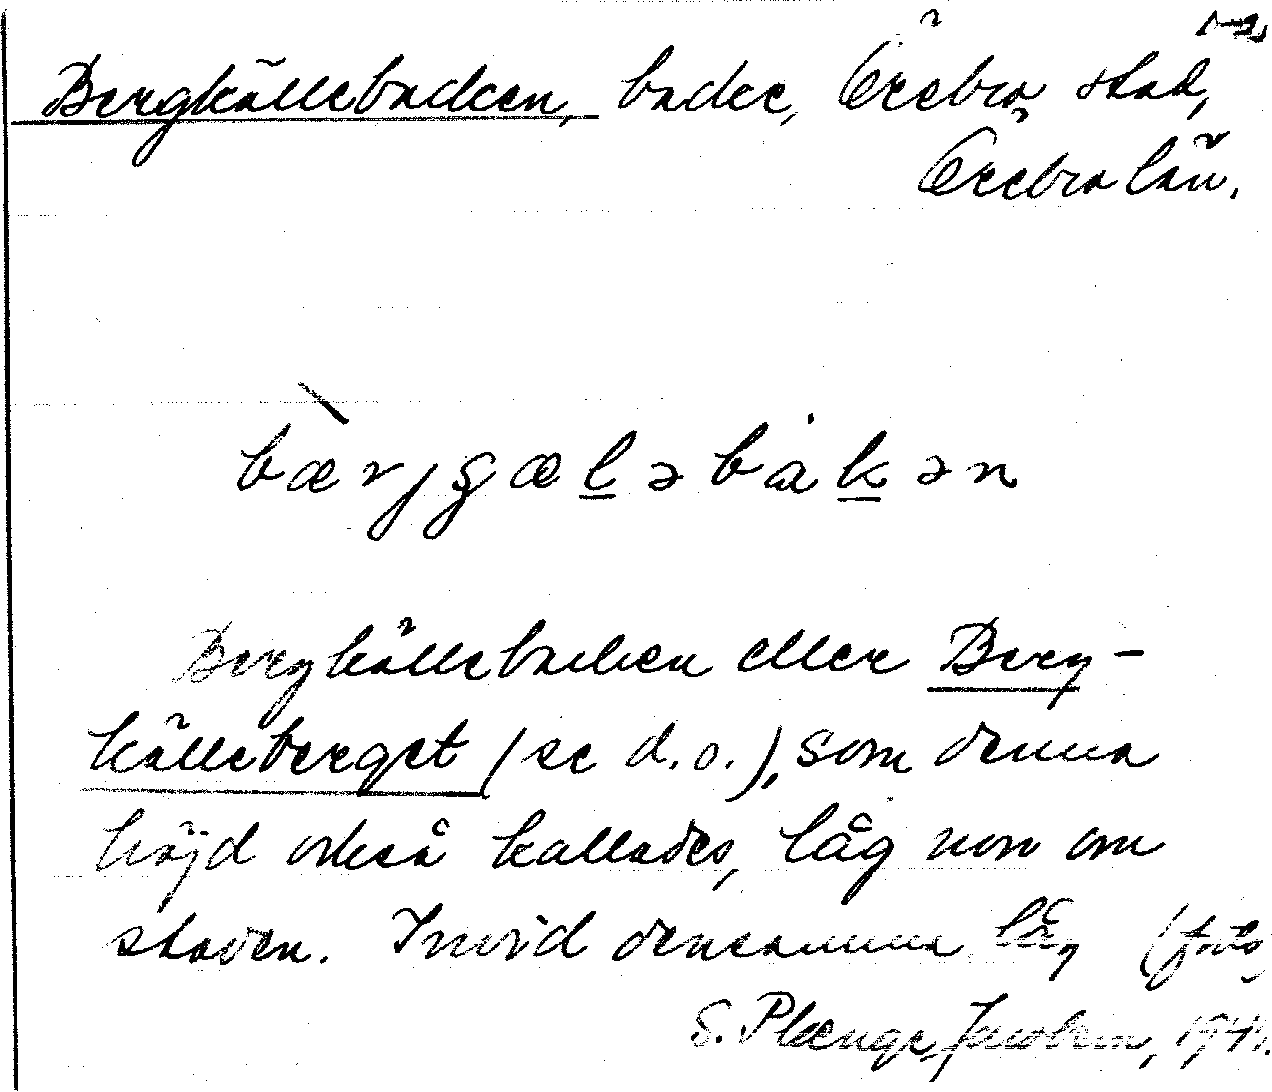 Bergkällebacken, backe, Örebro stad,
Örebro län.
bærjçælˌəbàkən
Bergkällebacken eller Berg-
källeberget (se d.o.), som denna
höjd också kallades, låg norr om
staden. Invid densamma låg (forts.
S. Plænge Jacobson, 1941.